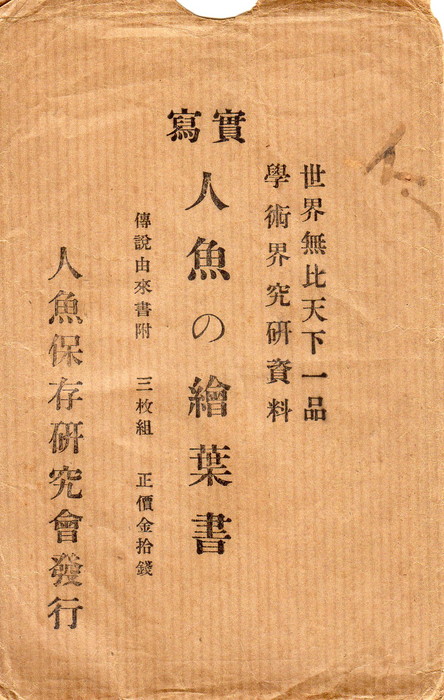 世界無比天下一品
學術界究研資料
實寫
人魚の繪葉書
傳說由來書附 三枚組 正價金拾錢
人魚保存硏究會發行